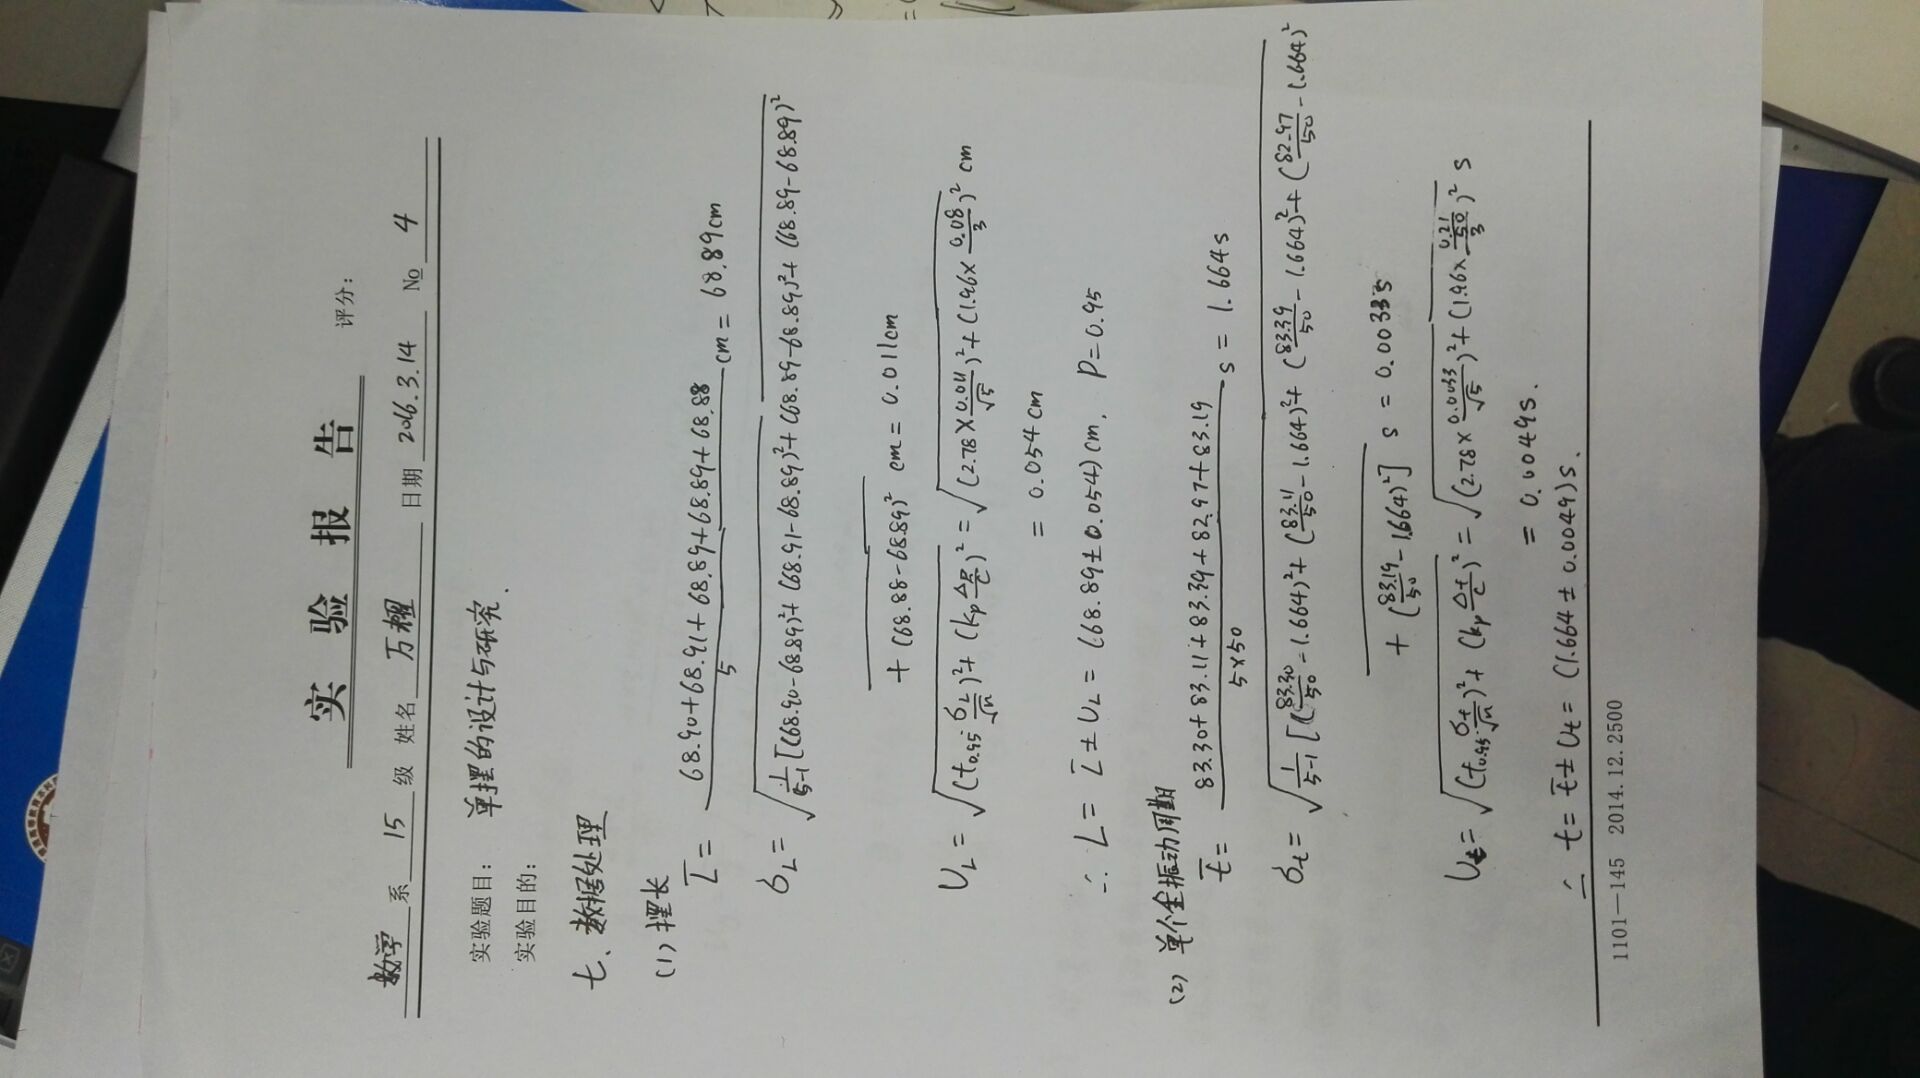 实 验 报 告
评分：
数学 系 15 级 姓名 万耀 日期 2016.3.14 № 4
实验题目： 单摆的设计与研究.
实验目的：
七、数据处理
(1) 摆长
L̄ = (68.90+68.91+68.89+68.89+68.88)/5 cm = 68.89cm
σL = √(1/(5-1) [(68.90-68.89)²+(68.91-68.89)²+(68.89-68.89)²+(68.89-68.89)²
+(68.88-68.89)² cm = 0.011cm
UL = √((t0.95 σL/√n)²+(kp ΔB/C)²) = √((2.78×0.011/√5)²+(1.96×0.08/3)²) cm
= 0.054cm
∴ L = L̄ ± UL = (68.89±0.054)cm, P=0.95
(2) 单个全振动周期
t̄ = (83.30+83.11+83.39+82.97+83.19)/(5×50) s = 1.664s
σt = √(1/(5-1) [(83.30/50-1.664)²+(83.11/50-1.664)²+(83.39/50-1.664)²+(82.97/50-1.664)²
+(83.19/50-1.664)²] s = 0.0033s
Ut = √((t0.95 σt/√n)²+(kp Δt/C)²) = √((2.78×0.0033/√5)²+(1.96×(0.21/50)/3)²) s
= 0.0049s.
∴ t = t̄ ± Ut = (1.664±0.0049)s.
1101—145 2014.12.2500